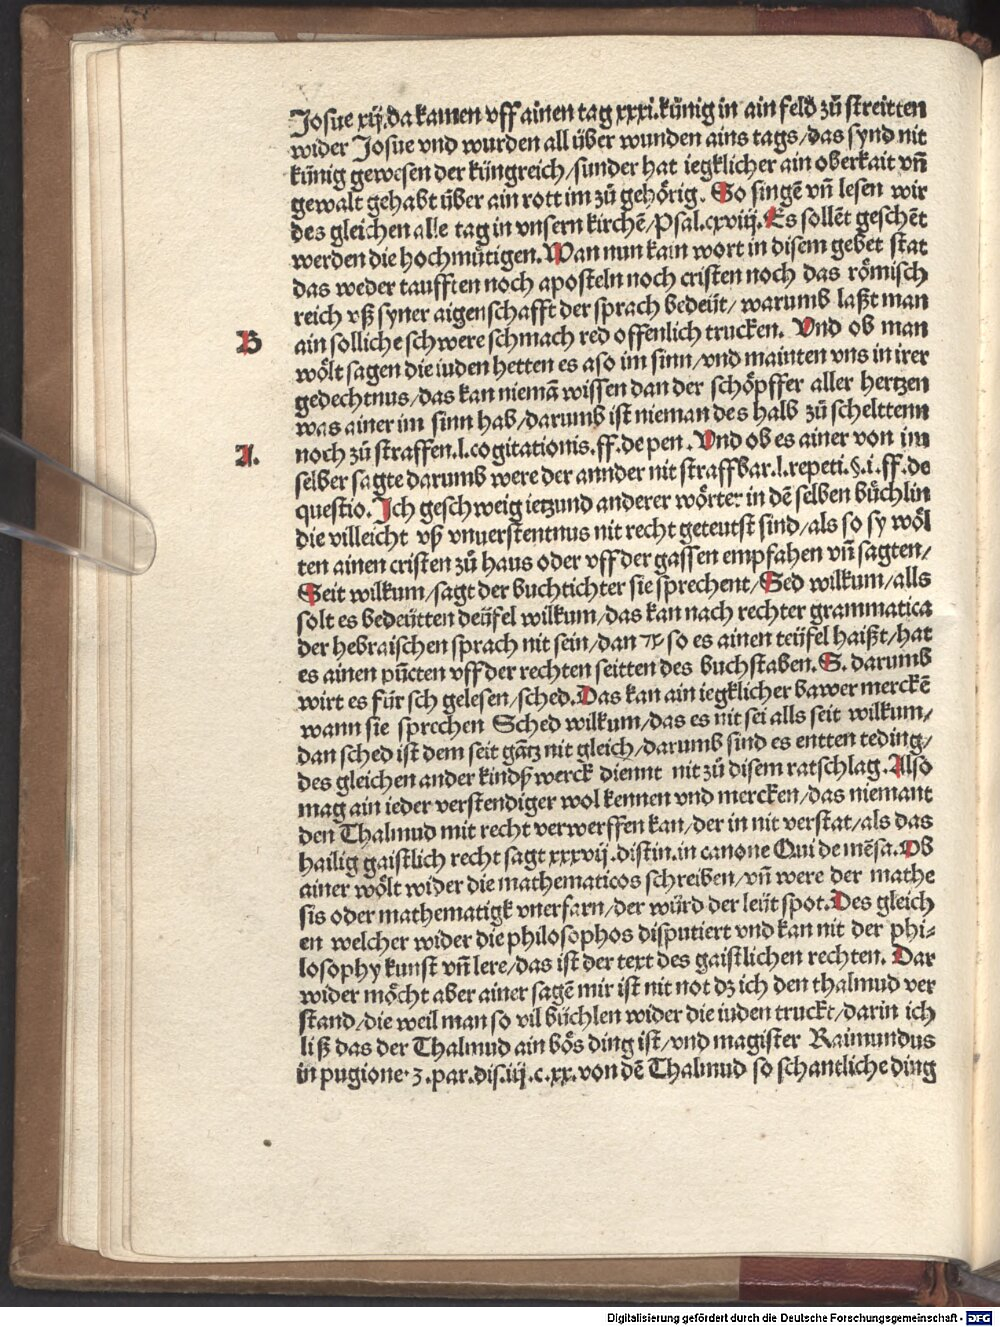 Josue xij. da kamen vff ainen tag xxxi. künig in ain feld zů streitten
wider Josue vnd wurden all über wunden ains tags/das synd nit
künig gewesen der küngreich/sunder hat iegklicher ain oberkait vñ
gewalt gehabt über ain rott im zů gehörig. So singẽ vñ lesen wir
des gleichen alle tag in vnsern kirchẽ/Psal.cxviij. Es sollẽt geschẽt
werden die hochmütigen. Wan nun kain wort in disem gebet stat
das weder taufften noch aposteln noch cristen noch das römisch
reich vß syner aigenschafft der sprach bedeüt/warumb laßt man
B
ain solliche schwere schmach red offenlich trucken. Vnd ob man
wölt sagen die iuden hetten es aso im sinn/vnd mainten vns in irer
gedechtnus/das kan niemã wissen dan der schöpffer aller hertzen
was ainer im sinn hab/darumb ist nieman des halb zů schelttenn
I.
noch zů straffen.l.cogitationis.ff.de pen. Vnd ob es ainer von im
selber sagte darumb were der annder nit straffbar.l.repeti.§.i.ff.de
questio. Ich geschweig ietzund anderer wörter in dẽ selben büchlin
die villeicht vß vnuerstentnus nit recht geteutst sind/als so sy wöl
ten ainen cristen zů haus oder vff der gassen empfahen vñ sagten/
Seit wilkum/sagt der buchtichter sie sprechent/Sed wilkum/alls
solt es bedeütten deüfel wilkum/das kan nach rechter grammatica
der hebraischen sprach nit sein/dan שד so es ainen teüfel haißt/hat
es ainen pũcten vff der rechten seitten des buchstaben. S. darumb
wirt es für sch gelesen/sched. Das kan ain iegklicher bawer merckẽ
wann sie sprechen Sched wilkum/das es nit sei alls seit wilkum/
dan sched ist dem seit gãtz nit gleich/darumb sind es entten teding/
des gleichen ander kindßwerck diennt nit zů disem ratschlag. Also
mag ain ieder verstendiger wol kennen vnd mercken/das niemant
den Thalmud mit recht verwerffen kan/der in nit verstat/als das
hailig gaistlich recht sagt xxxvij.distin.in canone Qui de mẽsa. Ob
ainer wölt wider die mathematicos schreiben/vñ were der mathe
sis oder mathematigk vnerfarn/der würd der leüt spot. Des gleich
en welcher wider die philosophos disputiert vnd kan nit der phi-
losophy kunst vñ lere/das ist der text des gaistlichen rechten. Dar
wider möcht aber ainer sagẽ mir ist nit not dz ich den thalmud ver
stand/die weil man so vil büchlen wider die iuden truckt/darin ich
liß das der Thalmud ain bös ding ist/vnd magister Raimundus
in pugione.3.par.dis.iij.c.xx.von dẽ Thalmud so schantliche ding
Digitalisierung gefördert durch die Deutsche Forschungsgemeinschaft - DFG